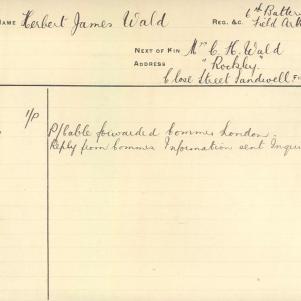 NAME Herbert James Wald REG. &C. 6th Batter
Field Art
NEXT OF KIN Mrs C. H. Wald
ADDRESS "Rocksley"
Close Street Candwell
1/P P/Cable forwarded Commes London.
Reply from Commes Information sent Inqui